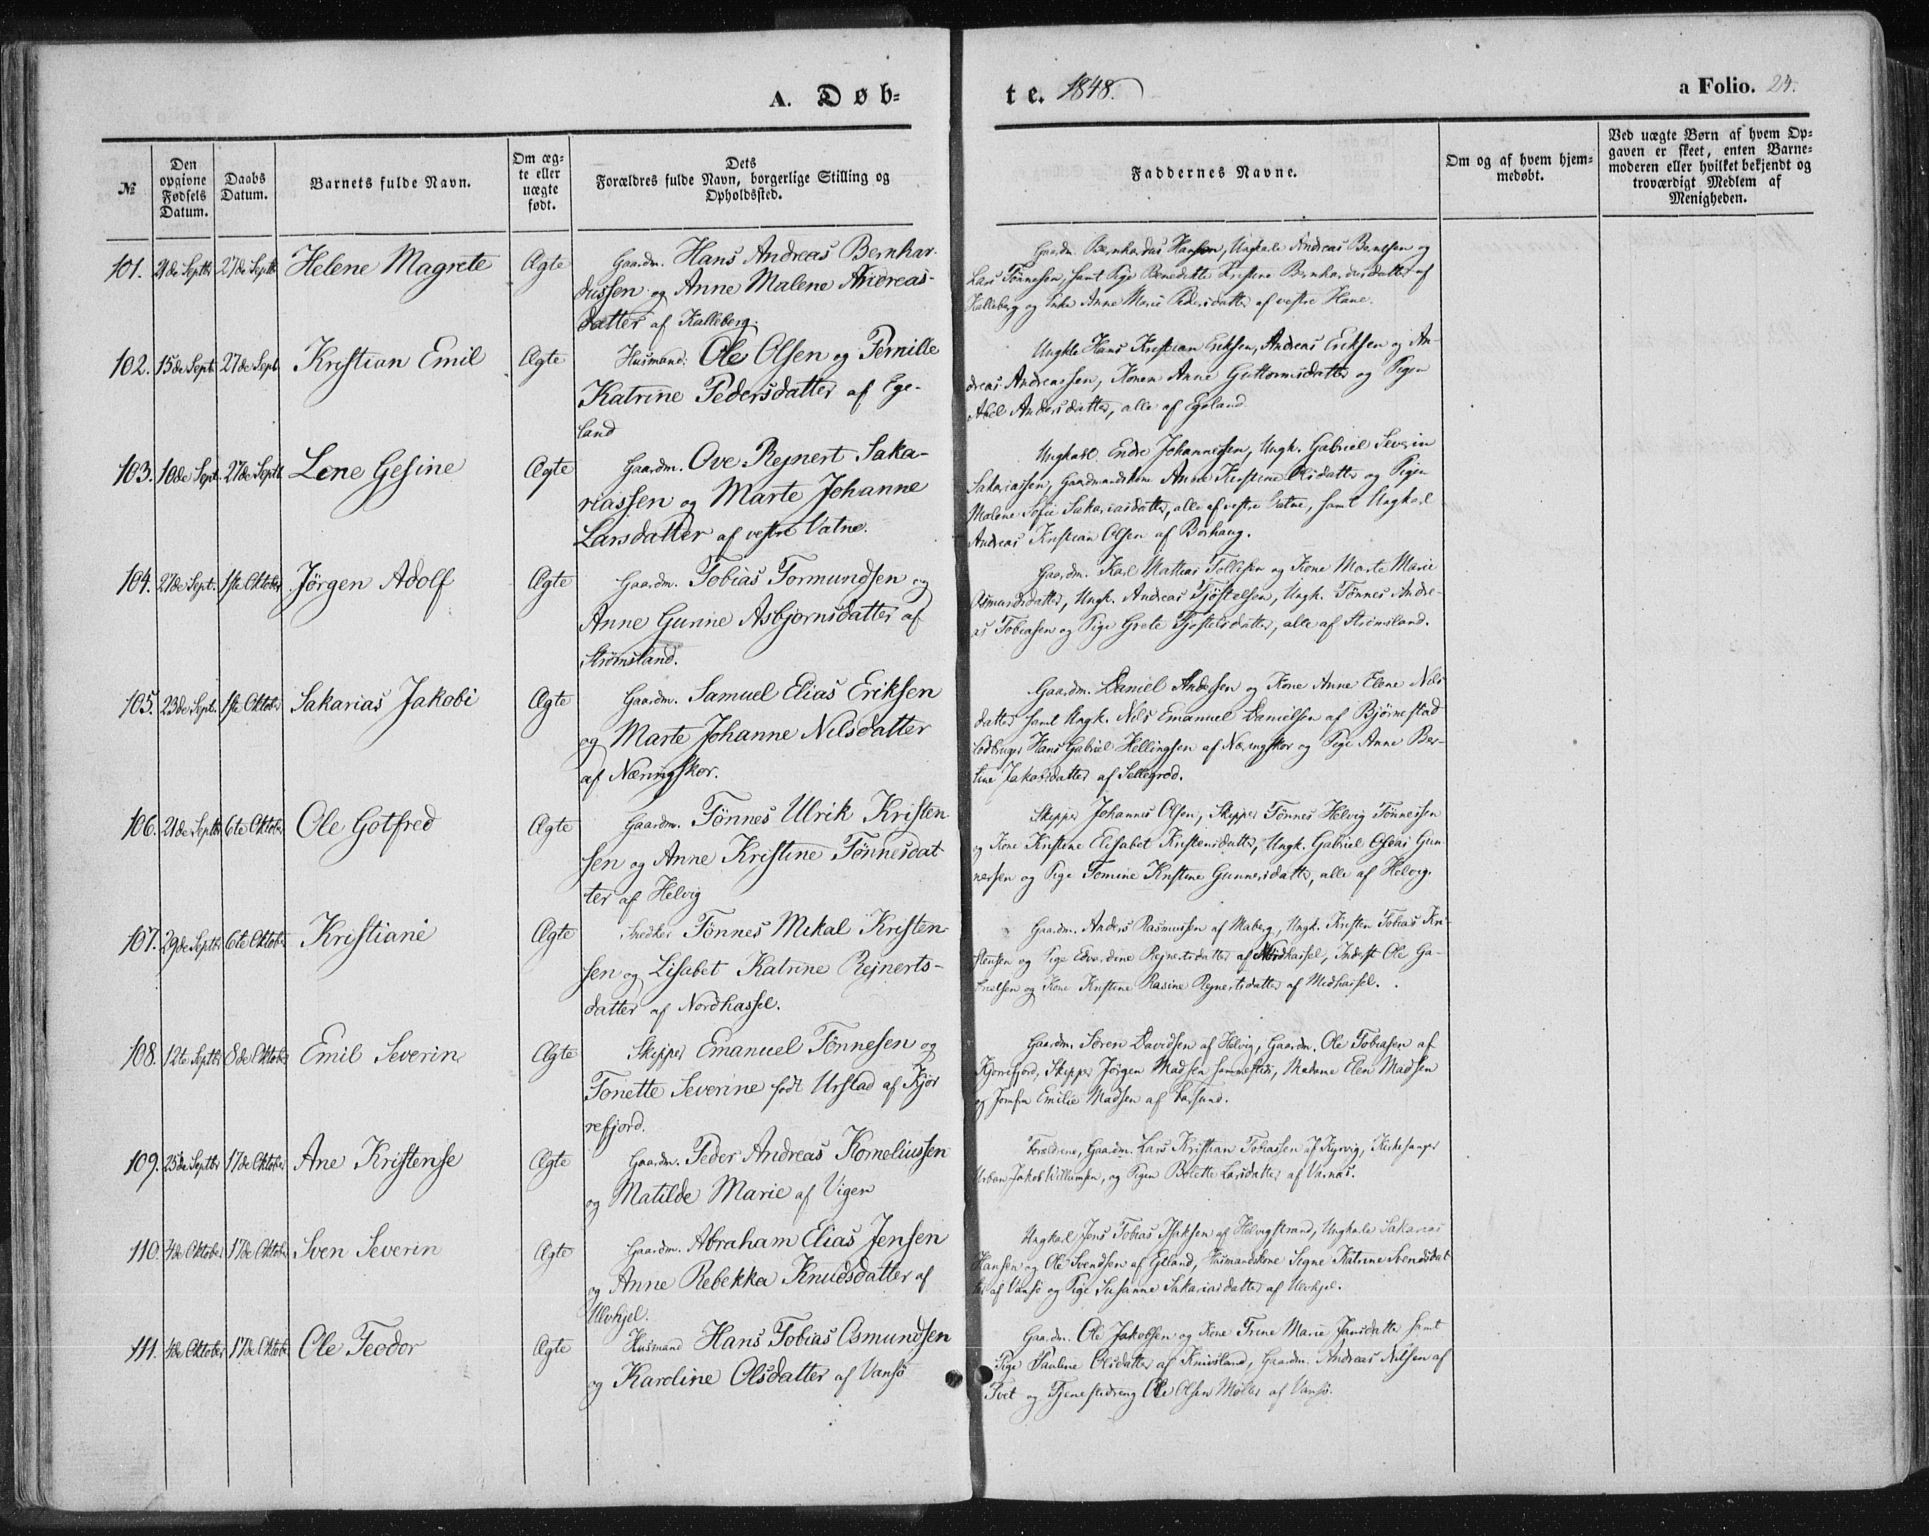 A. Døb-
te. 1848.
a Folio. 24.
№
Den opgivne Fødsels Datum.
Daabs Datum.
Barnets fulde Navn.
Om æg-te eller uægte født.
Dets Forældres fulde Navn, borgerlige Stilling og Opholdssted.
Faddernes Navne.
Om og af hvem hjem-medøbt.
Ved uægte Børn af hvem Op-gaven er skeet, enten Barne-moderen eller hvilket bekjendt og troværdigt Medlem af Menigheden.
101. 21de Septbr 27de Septbr Helene Magrete Ægte Gaardm. Hans Andreas Bernhar-
dussen og Anne Malene Andreas-
datter af Kalleberg.
Gaardm. Bernhardus Hansen, Ungkarle Andreas Berntsen og
Lars Tønnesen, samt Pige Benedikte Kristine Bernhardusdatter af
Kalleberg og Enke Anne Marie Pedersdatter af vestre Hane.
102. 15de Sept. 27de Sept. Kristian Emil Ægte Husmand: Ole Olsen og Pernille
Katrine Pedersdatter af Ege-
land
Ungkle Hans Kristian Eriksen, Andreas Eriksen og An
dreas Andreassen, Konen Anne Guttormsdatter og Pigen
Abel Andersdatter, alle af Egeland
103. 10de Sept. 27de Septb Lene Gesine Ægte Gaardm. Ove Rejnert Saka-
riassen og Marte Johanne
Larsdatter af vestre Vatne.
Ungkarl Endre Johannessen, Ungk. Gabriel Severin
Sakariassen, Gaardmandskone Anne Kirstine Olsdatter og Pigen
Malene Sofie Sakariasdatter, alle af vestre Vatne, samt Ungkarl
Andreas Kristian Olsen af Borhaug.
104. 27de Sept. 1ste Oktober Jørgen Adolf Ægte Gaardm. Tobias Tormundsen og
Anne Gurine Asbjørnsdatter af
Strømsland.
Gaardm. Karl Mattias Tollisen og Kone Marte Marie
Osmundsdatter, Ungk. Andreas Tjøstelsen, Ungk. Tønnes Andre-
as Tobiasen og Pige Grete Tjøstelsdatter, alle af Strømsland.
105. 23de Sept. 1ste Oktober Sakarias Jakobi Ægte Gaardm. Samuel Elias Eriksen
og Marte Johanne Nilsdatter
af Næringskor.
Gaardm. Daniel Andersen og Kone Anne Elene Nils
datter samt Ungk. Nils Emanuel Danielsen af Bjørnestad
Lodbruger Hans Gabriel Hellingsen af Næringskor og Pige Anne Ber-
tine Jakobsdatter af Sellegrod.
106. 21de Septbr 6te Oktober Ole Gotfred Ægte Gaardm. Tønnes Ulrik Kristen
sen og Anne Kristine Tønnesdat
ter af Helvig
Skipper Johannes Olsen, Skipper Tønnes Helvig Tønnessen
og Kone Kristine Elisabet Kristensdatter, Ungk. Gabriel Oseas Gun
nersen og Pige Tomine Kristine Gunnersdatter, alle af Helvig.
107. 29de Septbr 6te Oktober Kristiane Ægte Snedker Tønnes Mikal Kristen-
sen og Lisabet Katrine Rejnerts-
datter af Nordhassel.
Gaardm. Anders Rasmussen af Maberg, Ungk. Kristen Tobias Kri-
stensen og Pige Edvardine Rejnertsdatter af Nordhassel, Inderst Ole Ga-
brielsen og Kone Kristine Rasine Rejnertsdatter af Midhassel.
108. 12te Septbr 8de Oktober Emil Severin Ægte Skipper Emanuel Tønnesen og
Tonette Severine født Urstad af Kjør
refjord.
Gaardm. Søren Davidsen af Helvig, Gaardm. Ole Tobiasen af
Kjørrefjord, Skipper Jørgen Madsen sammesteds, Madame Elen Madsen
og Jomfru Emilie Madsen af Farsund.
109. 25de Septbr 17de Oktober Ane Kristense Ægte Gaardm. Peder Andreas Korneliussen
og Matilde Marie af Vigen
Forældrene, Gaardm. Lars Kristian Tobiassen af Kjrvig, Kirkesanger
Urban Jakob Willumsen, og Pigen Bolette Larsdatter af Varnæs.
110. 4de Oktober 17de Oktober Sven Severin Ægte Gaardm. Abraham Elias Jensen
og Anne Rebekka Knudsdatter af
Ulvhjel.
Ungkarl Jens Tobias Isaksen af Helvigstrand, Ungkarle Sakarias
Hansen og Ole Svendsen af Eiland, Husmandskone Segne Katrine Svendsdat
ter af Vansø og Pige Susanne Sakariasdatter af Ulvhjel.
111. 4de Oktober 17de Oktober Ole Teodor Ægte Husmand Hans Tobias Osmundsen
og Karoline Olsdatter af Vansø
Gaardm. Ole Jakobsen og Kone Trine Marie Jansdatter samt
Pige Paulene Olsdatter af Knivsland, Gaardm. Andreas Nilsen af
Tvet og Tjenestedreng Ole Olsen Møller af Vansø.